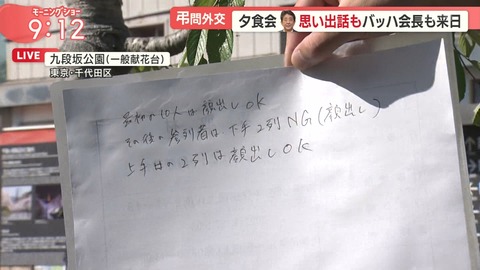 モーニングショー
9:12
LIVE 九段坂公園(一般献花台)
東京・千代田区
弔問外交
夕食会 思い出話もバッハ会長も来日
最初の10人は顔出しOK
その後の参列者は下手2列NG(顔出し)
上手側の2列は顔出しOK